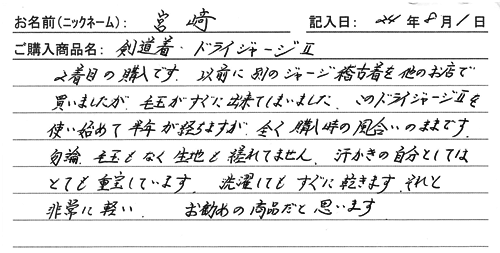 お名前(ニックネーム): 宮崎 記入日: 24年8月1日
ご購入商品名: 剣道着・ドライジャージⅡ
2着目の購入です. 以前に別のジャージ稽古着を他のお店で
買いましたが、毛玉がすぐに出来てしまいました. このドライジャージⅡを
使い始めて半年が経ちますが、全く購入時の風合いのままです.
勿論、毛玉もなく生地も縒れてません. 汗かきの自分としては
とても重宝しています. 洗濯してもすぐに乾きます. それと
非常に軽い. お勧めの商品だと思います